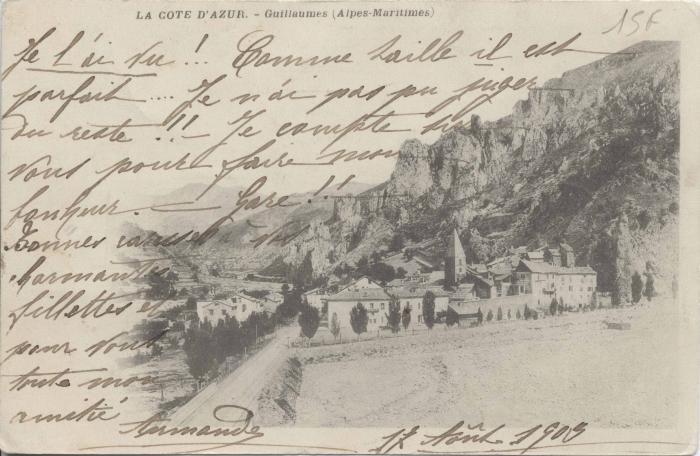 LA COTE D'AZUR. - Guillaumes (Alpes-Maritimes)
15F
Je l'ai vu !! Comme taille il est
parfait .... Je n'ai pas pu juger
du reste !! - Je compte sur
vous pour faire mon
bonheur. - Gare !!
Bonnes caresses à vos
charmantes
fillettes et
pour vous
toute mon
amitié
Armande
17 Août 1903